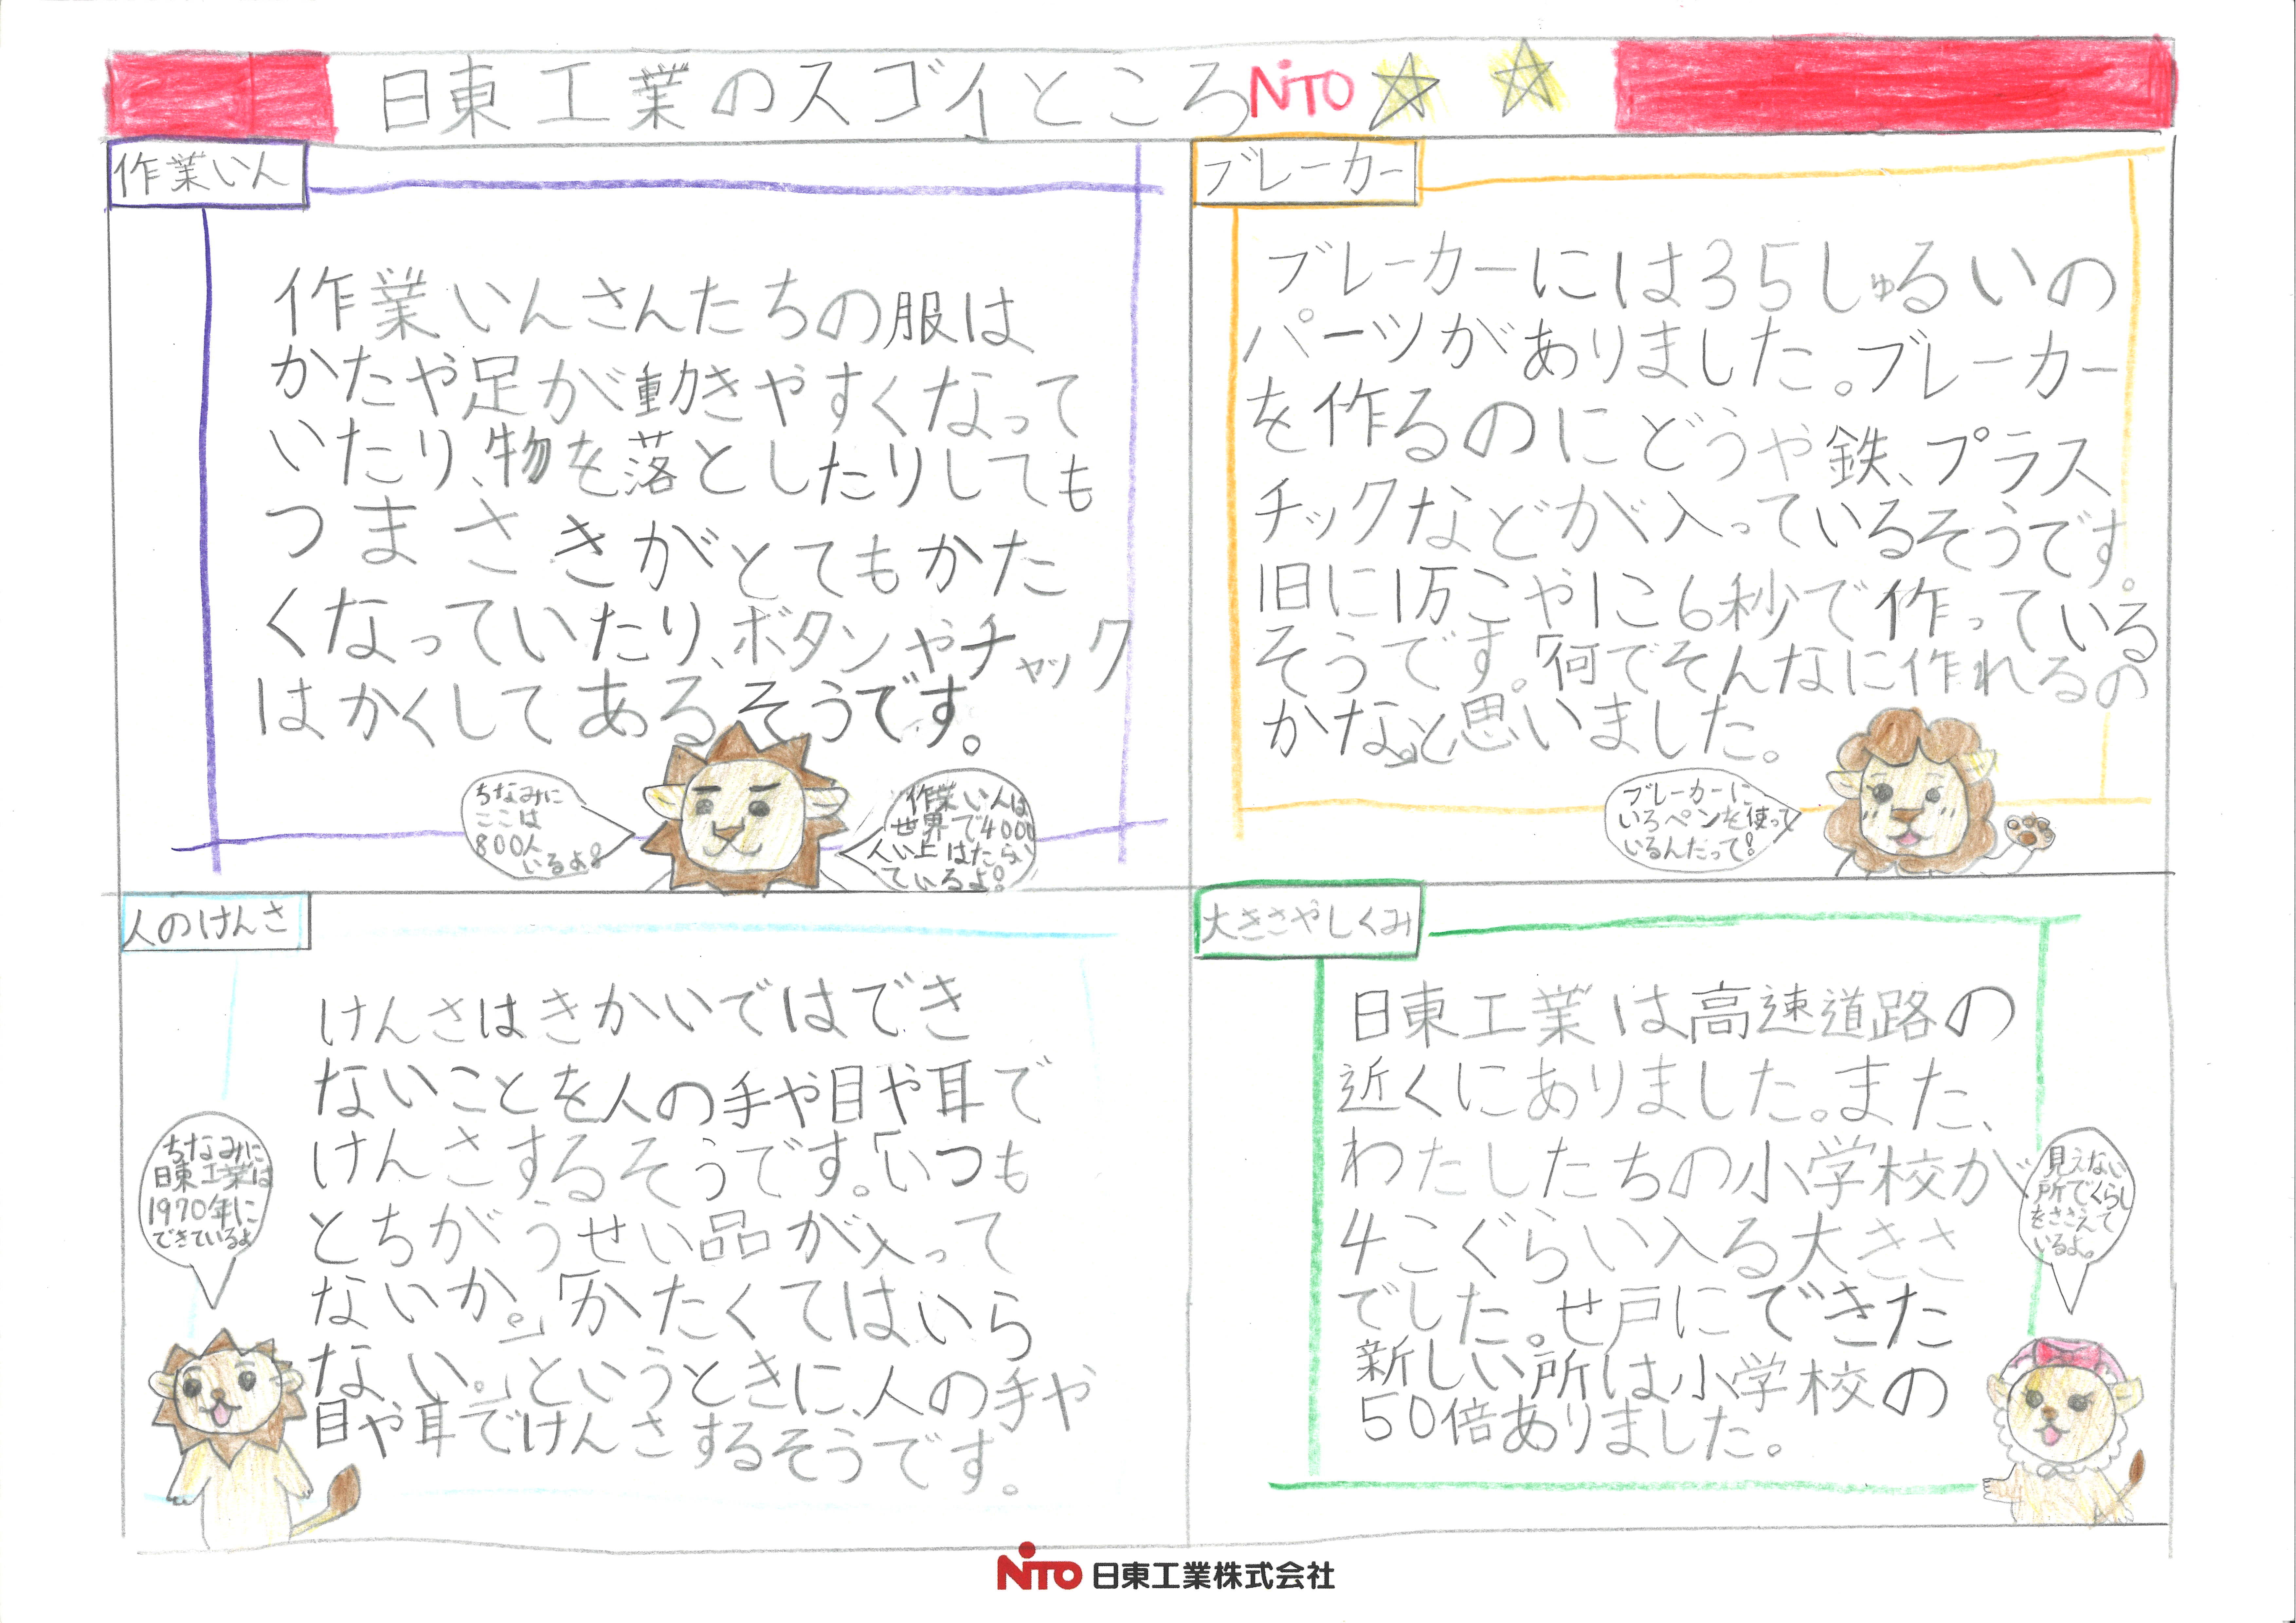 日東工業のスゴイところNiTO
作業いん
作業いんさんたちの服は
かたや足が動きやすくなって
いたり、物を落としたりしても
つまさきがとてもかた
くなっていたり、ボタンやチャック
はかくしてあるそうです。
ちなみに
ここは
800人
いるよ!
作業いんは
世界で4000
人い上はたらい
ているよ!
ブレーカー
ブレーカーには35しゅるいの
パーツがありました。ブレーカー
を作るのにどうや鉄、プラス
チックなどが入っているそうです。
1日に1万こや1こ6秒で作っている
そうです。「何でそんなに作れるの
かな。」と思いました。
ブレーカーに
いろペンを使って
いるんだって!
人のけんさ
けんさはきかいではでき
ないことを人の手や目や耳で
けんさするそうです。「いつも
とちがうせい品が入って
ないか。」「かたくてはいら
ない。」というときに、人の手や
目や耳でけんさするそうです。
ちなみに
日東工業は
1970年に
できているよ
大きさやしくみ
日東工業は高速道路の
近くにありました。また、
わたしたちの小学校が
4こぐらい入る大きさ
でした。せ戸にできた
新しい所は小学校の
50倍ありました。
見えない
所でくらし
をささえて
いるよ。
NiTO 日東工業株式会社